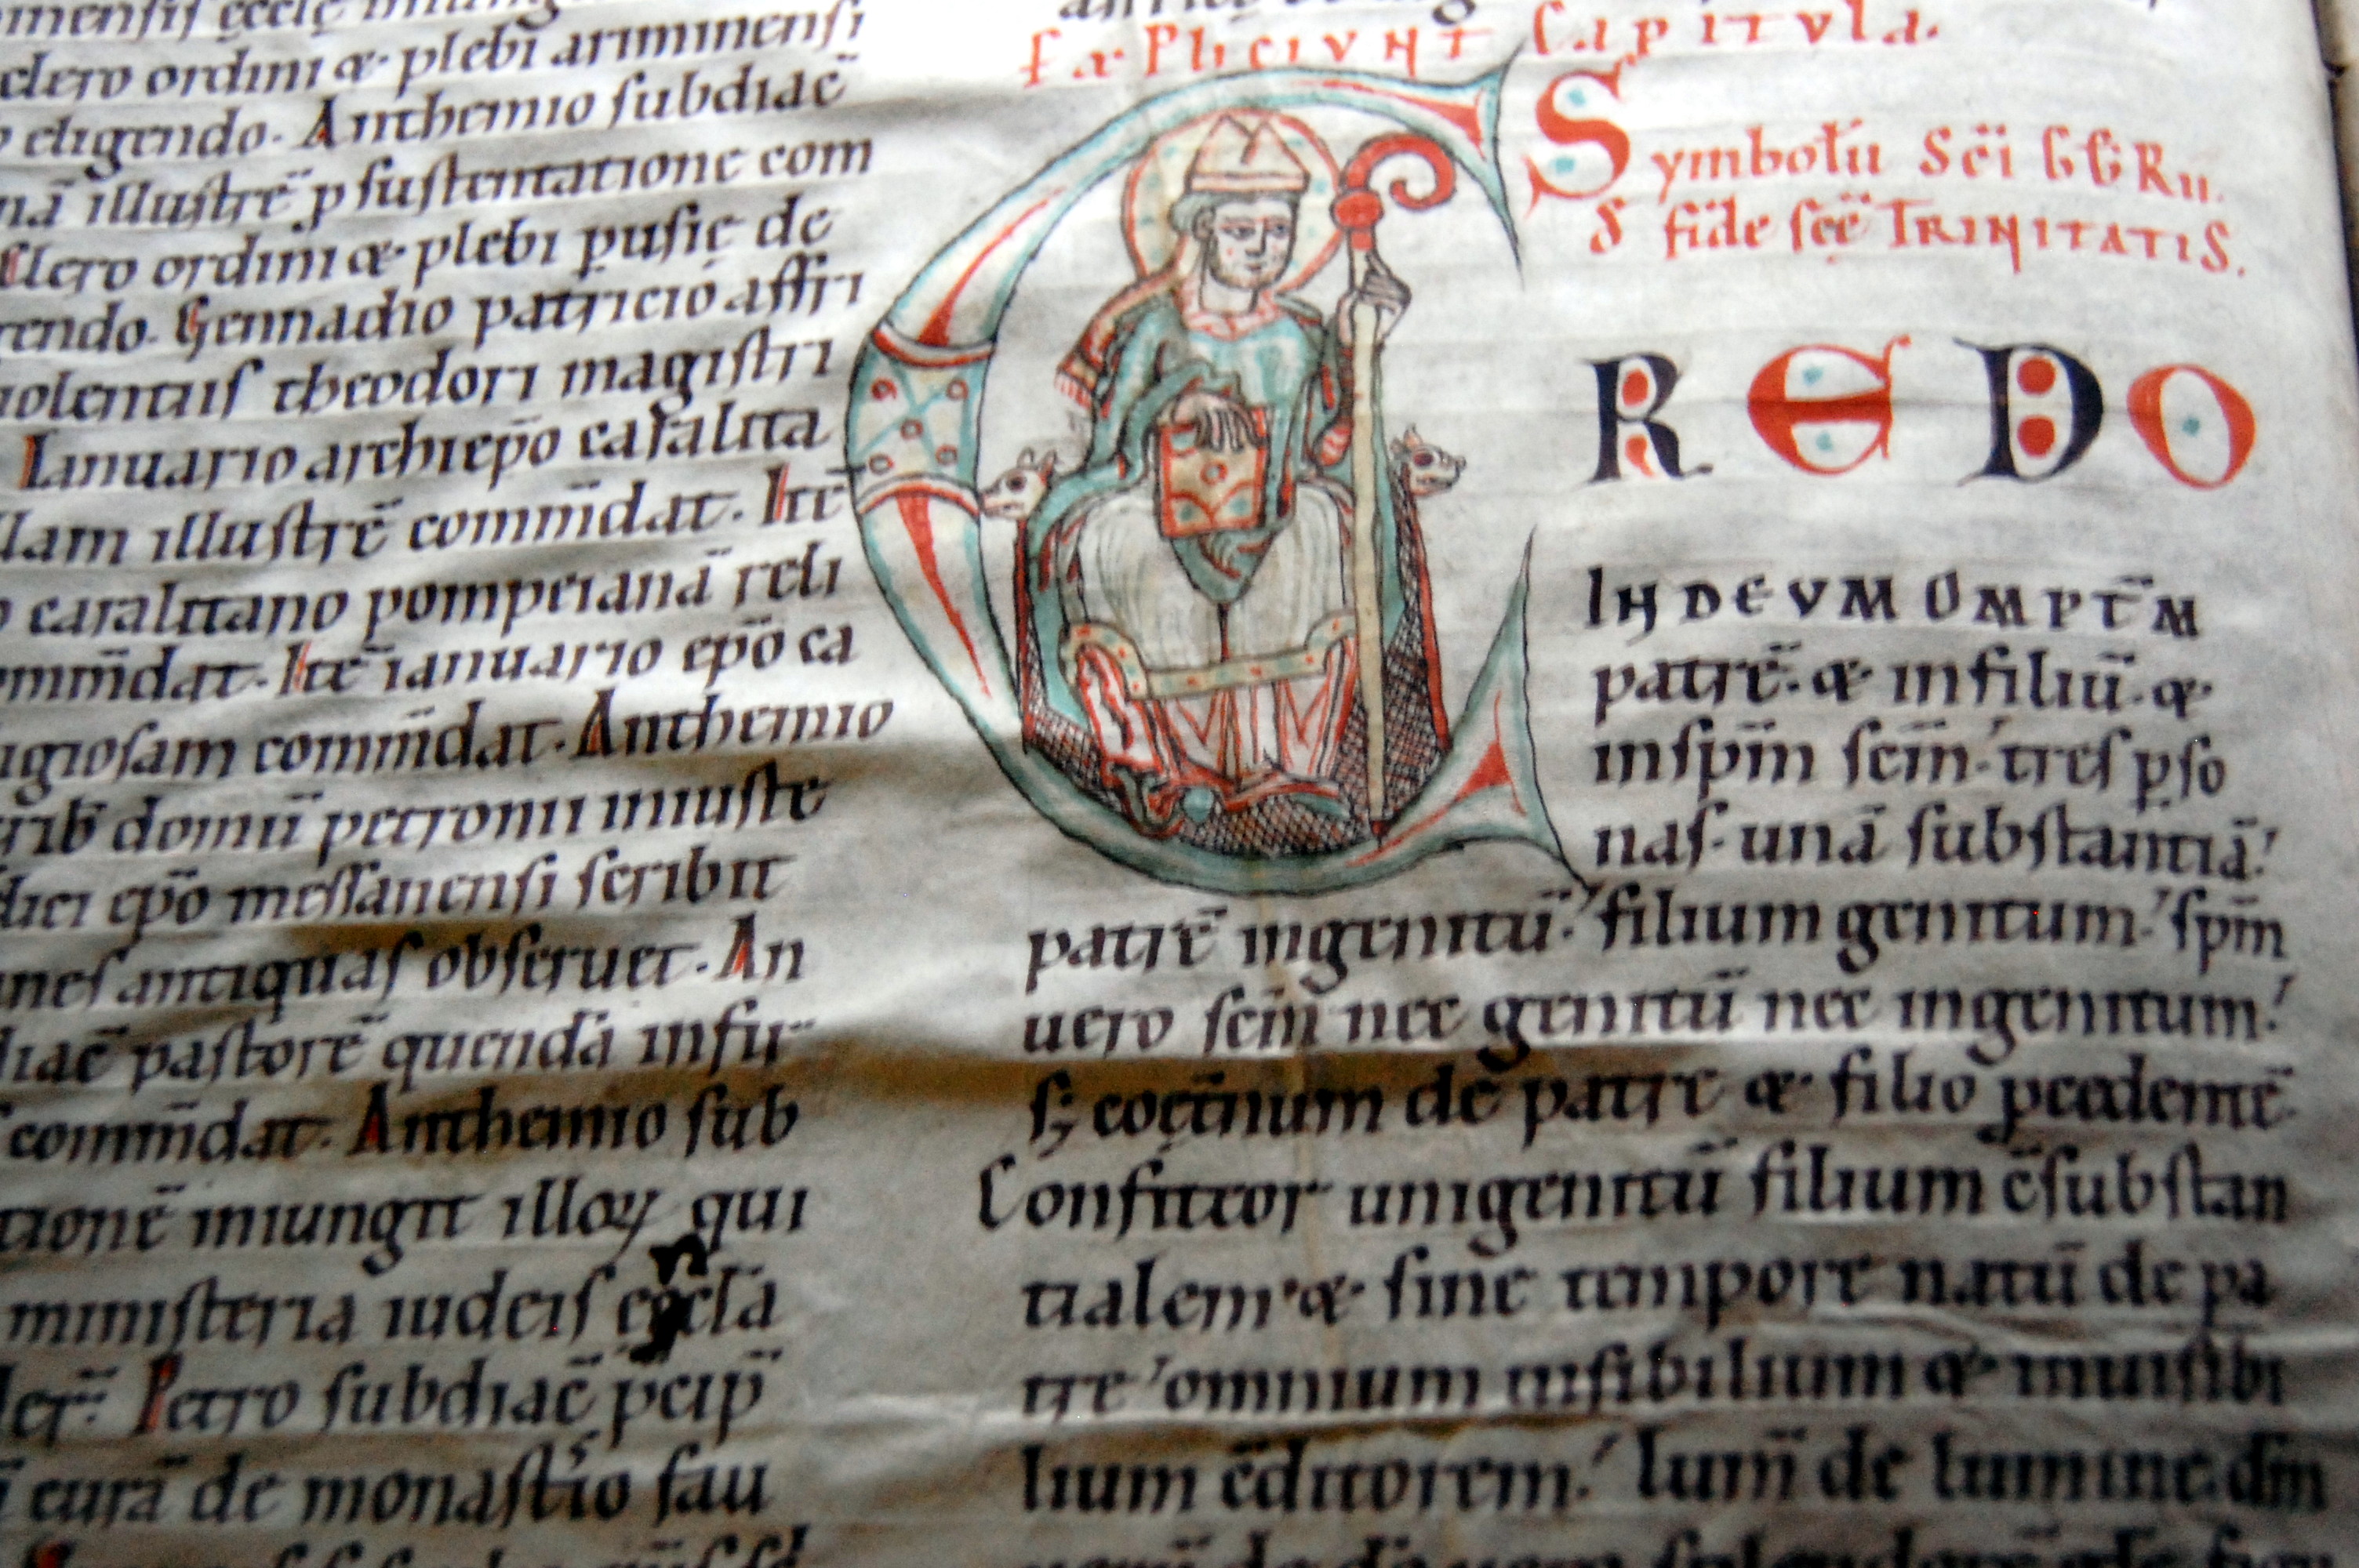 clero ordini & plebi ariminensi
eligendo. Anthemio subdiac̄
illustrē p sustentatione com
Clero ordini & plebi pusię de
Gennadio patricio affri
uiolentiis theodori magistri
Ianuario archiep̄o caralita
illustrē comm̄dat. Itē
caralitano pompeianā reli
comm̄dat. Itē ianuario ep̄o ca
comm̄dat. Anthemio
domū petronii iniuste
ep̄o messanensi scribit
antiquas obseruet. An
pastorē quendā infir
comm̄dat. Anthemio sub
iniungit illoꝝ qui
ministeria iudeis
Petro subdiac̄ p̄cip̄
curā de monast̄io fau
Ex Pliciunt Capitula.
Symbolū Sc̄i GG Ru.
δ fide sc̄ę Trinitatis.
CREDO
IN DEVM OMPT̄M
patrē. & in filiū. &
in sp̄m sc̄m. tres pſo
nas. unā substantiā.
patrē ingenitū. filium genitum. sp̄m
uero sc̄m nec genitū nec ingenitum.
sꝫ coęt̄num de patre & filio pcedentē.
Confiteor unigenitū filium c̄substan
tialem & sine tempore natū de pa
tre omnium uisibilium & inuisibi
lium c̄ditorem. lum̄ de lumine. dm̄